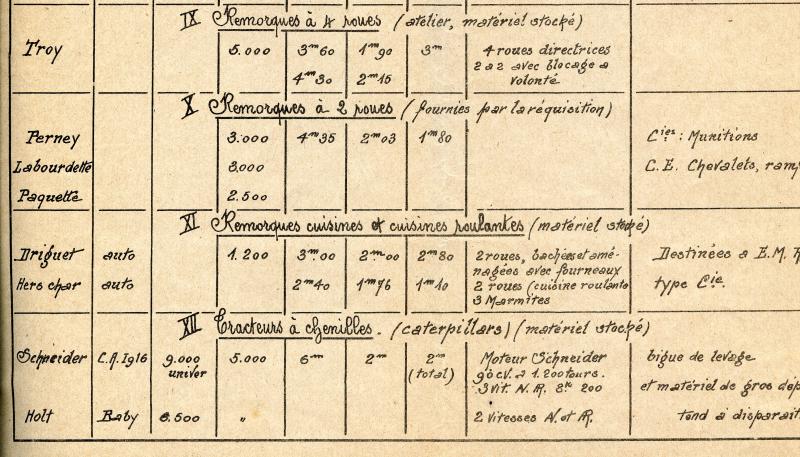 IX Remorques à 4 roues (atelier, matériel stocké)
Troy 5.000 3m60 1m90 3m 4 roues directrices
4m30 2m15 2 à 2 avec blocage à
volonté
X Remorques à 2 roues (fournies par la réquisition)
Perney 3.000 4m35 2m03 1m80 Cies : Munitions
Labourdette 3.000 C.E. Chevalets, ramp
Paquette 2.500
XI Remorques cuisines et cuisines roulantes (matériel stocké)
Driguet auto 1.200 3m00 2m00 2m80 2 roues, bachées et amé- Destinées à E.M. R
nagées avec fourneaux
Hers char auto 2m40 1m76 1m10 2 roues (cuisine roulante type Cie.
3 Marmites
XII Tracteurs à chenilles. (caterpillars) (matériel stocké)
Schneider C.A. 1916 9.000 5.000 6m 2m 2m Moteur Schneider bigue de levage
univer (total) 90 cv. à 1.200 tours.
3 vit. N. R. 200 et matériel de gros dép
Holt Baby 6.500 " 2 vitesses N. et R. tend à disparait